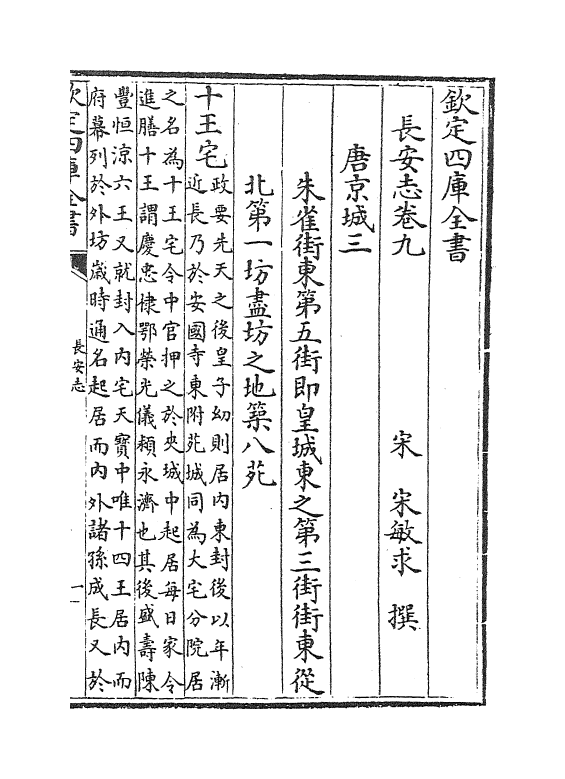 欽定四庫全書
長安志卷九
宋 宋敏求 撰
唐京城三
朱雀街東第五街即皇城東之第三街街東從
北第一坊盡坊之地築入苑
十王宅
政要先天之後皇子幼則居内東封後以年漸
近長乃於安國寺東附苑城同為大宅分院居
之名為十王宅令中官押之於夾城中起居每日家令
進膳十王謂慶忠棣鄂榮光儀頴永濟也其後盛壽陳
豐恒涼六王又就封入内宅天寶中唯十四王居内而
府幕列於外坊嵗時通名起居而内外諸孫成長又於
欽定四庫全書
長安志
一